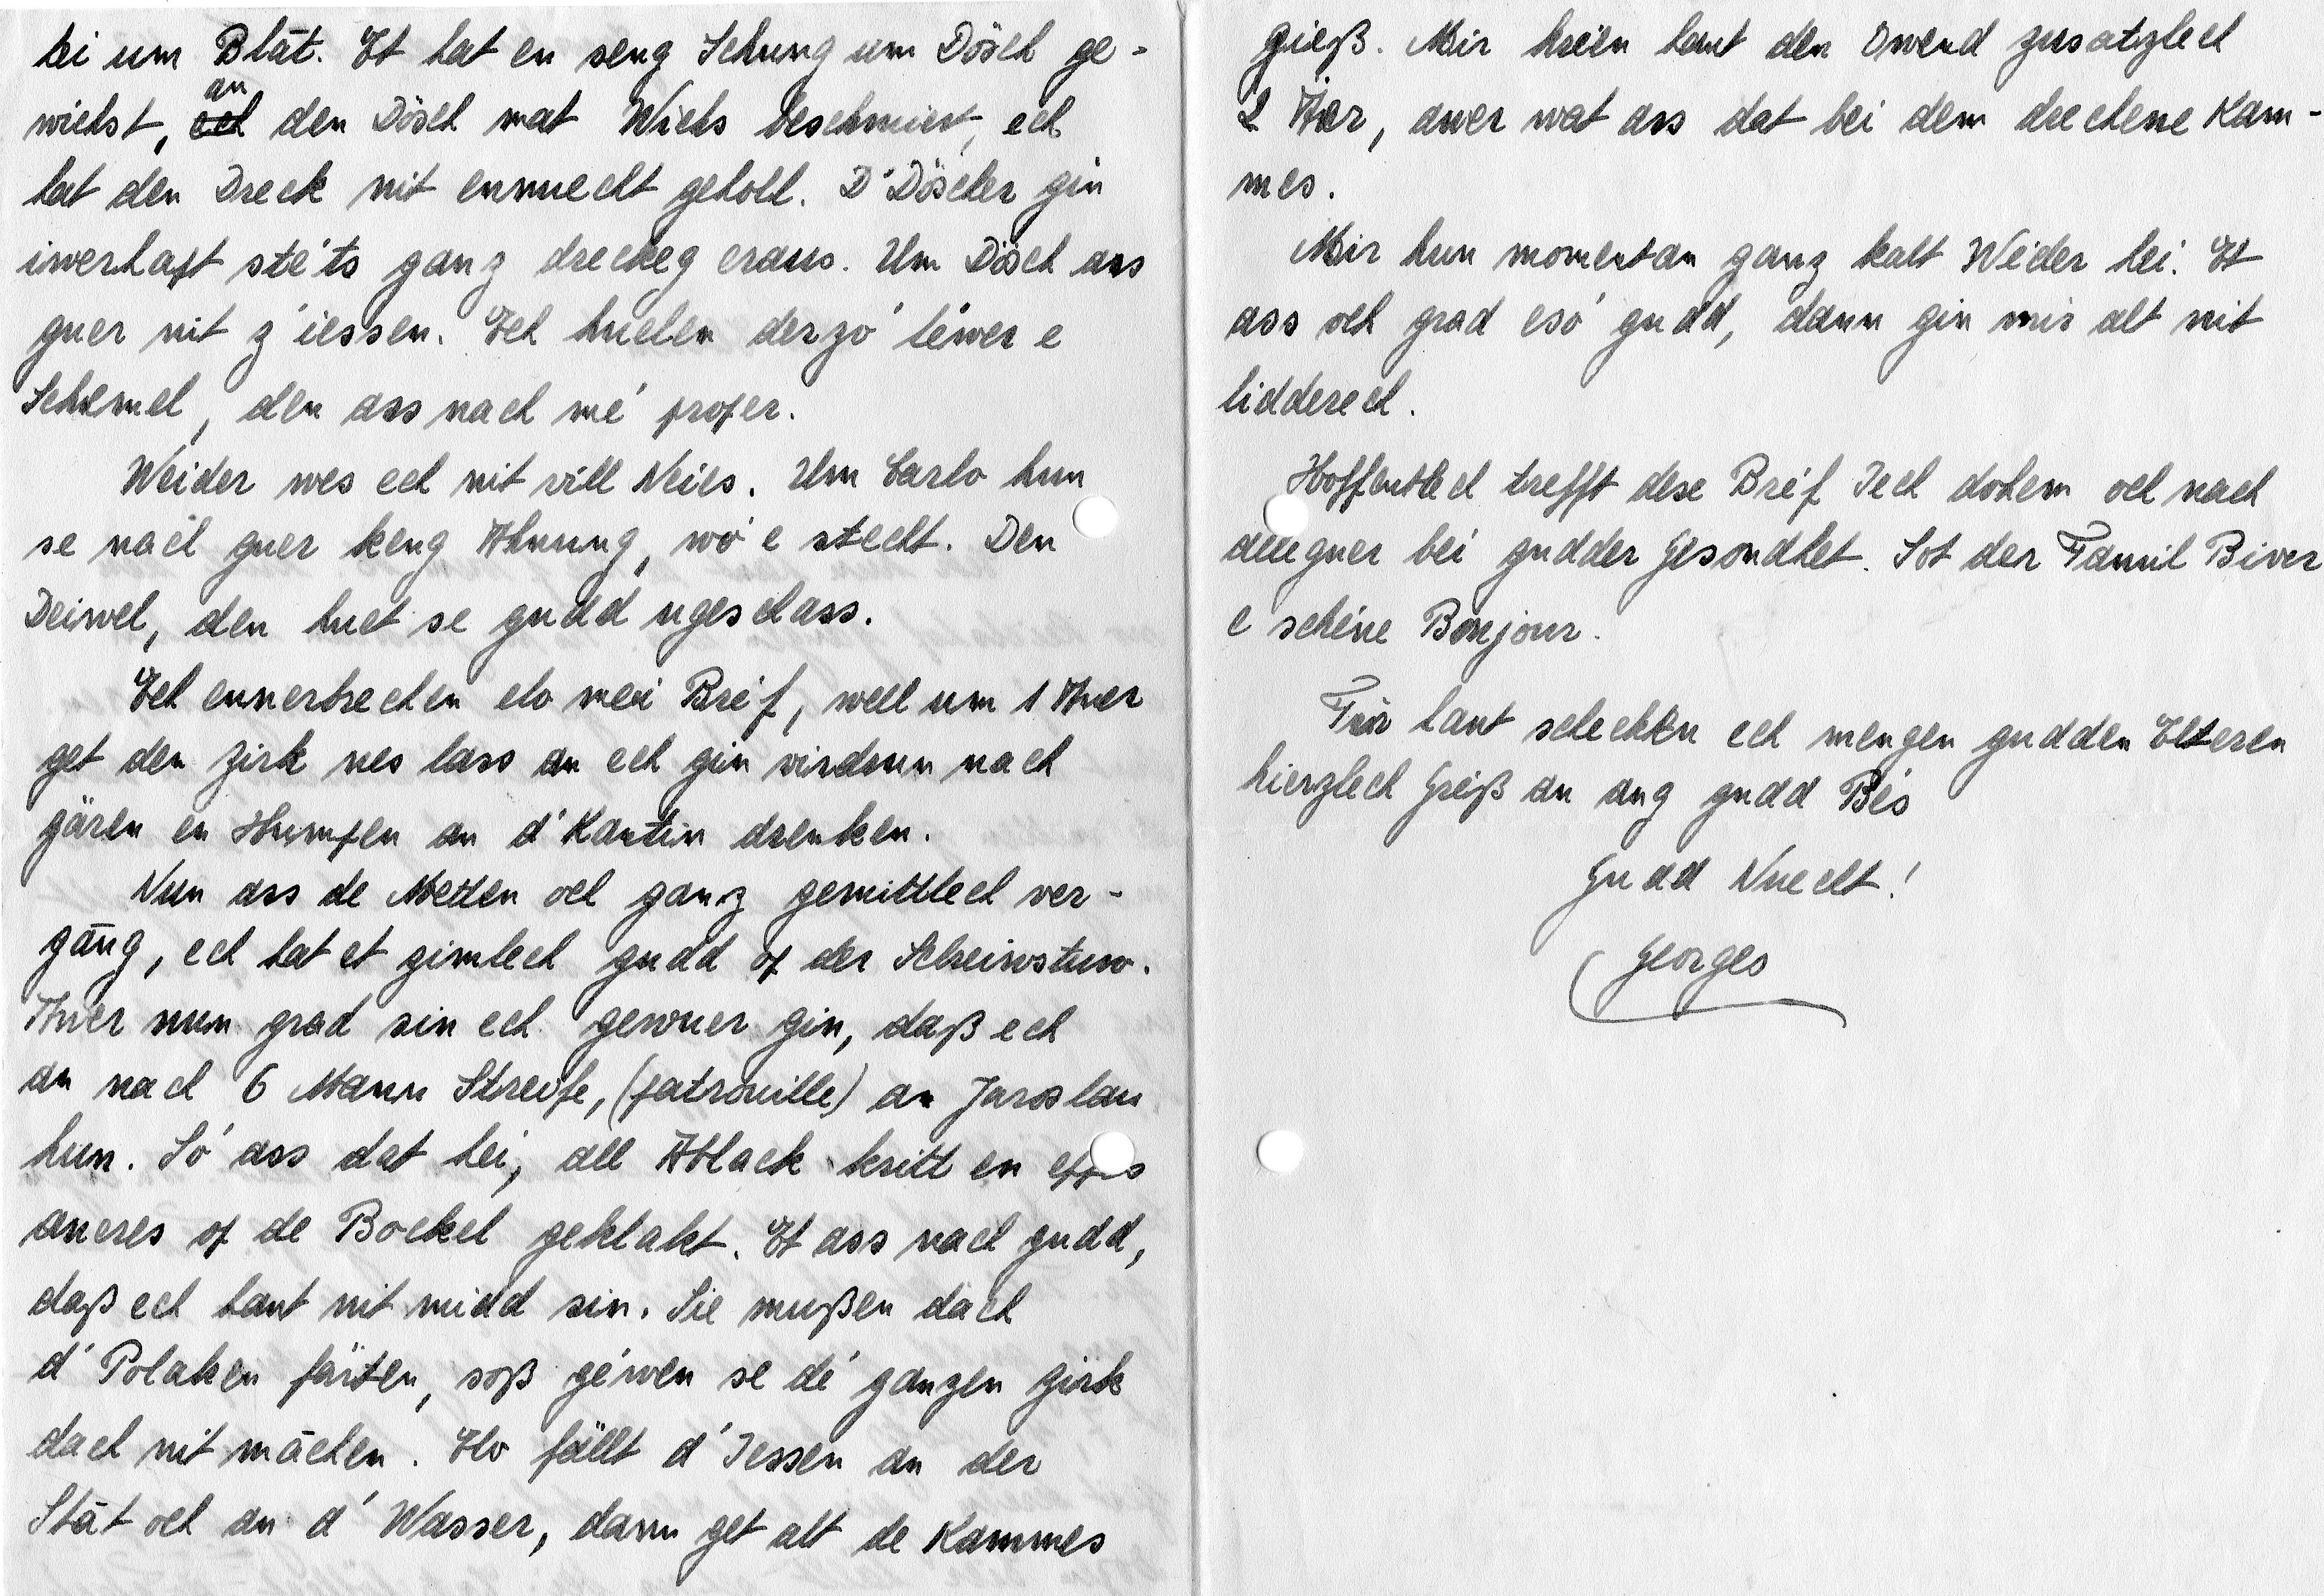 hei um Blāt. Et hat en seng Schung um Dösch ge-
wichst, an den Dösch mat Wichs beschmiert, ech
hat den Dreck nit ewuecht geholl. D'Döscher gin
iwerhapt stéts ganz dreckeg eraus. Um Dösch ass
guer nit z'iessen. Ech huelen derzó léwer e
Schemel, den ass nach mé proper.
Weider wes ech nit vill Neies. Um Carlo hun
se nach guer keng Ahnung, wó e stecht. Den
Deiwel, den huet se gudd ugeschass.
Ech ennerbrechen elo mei Bréf, well um 1 Auer
get den Zirk nes lass an ech gin virdrun nach
gären en Humpen an d'Kantin drenken.
Nun ass de Metten och ganz gemittlech ver-
gāng, ech hat et zimlech gudd op der Schreiwstuw.
Awer nun grad sin ech gewuer gin, daß ech
an nach 6 Mann Streife, (patrouille) an Jaroslau
hun. Só ass dat hei, all Ablack kritt en eppes
aneres op de Bockel geklakt. Et ass nach gudd,
daß ech haut nit midd sin. Sie mußen dach
d'Polaken fäerten, soß géwen se dé ganzen Zirk
dach nit māchen. Elo fällt d'Iessen an der
Stāt och an d'Wasser, dann get alt de Kammes
gieß. Mir kréien haut den Owend zusatzlech
2 Äer, awer wat ass dat bei dem drechene Kam-
mes.
Mir hun momentan ganz kalt Wieder hei. Et
ass och grad esó gudd, dann gin mir alt nit
liddereg.
Hoffentlech trefft dese Bréf Iech dohem och nach
alleguer bei gudder Gesondhet. Sot der Famil Biver
e schéine Bonjour.
Fir haut schecken ech mengen gudden Elteren
hierzlech Gréiß an eng gudd Bés
Gudd Nuecht!
Georges